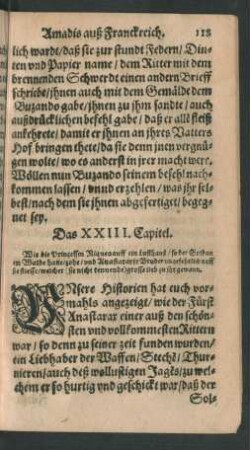 Amadis auß Franckreich. 118
lich wardt/daß sie zur stundt Federn/ Din-
ten vnd Papier name/ dem Ritter mit dem
brennenden Schwerdt einen andern Brieff
schriebe/jhnen auch mit dem Gemälde dem
Buzando gabe/jhnen zu jhm sandte/auch
außdrücklichen befehl gabe/ daß er all fleiß
ankehrete/damit er jhnen an jhres Vatters
Hof bringen thete/da sie denn jnen vergnü-
gen wolte/ wo es anderst in jrer macht were.
Wöllen nun Buzando seinem befehl nach-
kommen lassen/ vnnd erzehlen/ was jhr sel-
best/nach dem sie jhnen abgefertiget/begeg-
net sey.
Das XXIII. Capitel.
Wie die Princessin
im Walde
sie nicht
VNsere Historien hat euch vor-
mahls angezeigt/wie der Fürst
Anastarax einer auß den schön-
sten vnd vollkommesten Rittern
war/ so denn zu seiner zeit funden wurden/
ein Liebhaber der Waffen/ Stechẽ/ Thur-
nieren/auch deß wollustigen Jagts/zu wel-
chem er so hurtig vnd geschickt war/daß der
Sol-